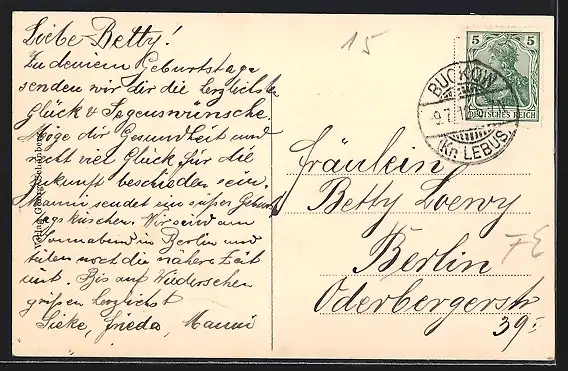 Liebe Betty!
Zu deinem Geburtstage
senden wir dir die herzlichsten
Glück & Segenswünsche.
Möge dir Gesundheit und
recht viel Glück für die
Zukunft beschieden sein.
Manni sendet ein süßes Geburts
tagsküschen. Wir sind am
Sonnabend in Berlin und
teilen noch die nähere Zeit
mit. Bis auf Wiedersehen
grüßen herzlichst
Frieda, Manni
15
5 5
DEUTSCHES REICH
BUCKOW
9.7.
(Kr. LEBUS)
Fräulein
Betty Loewy
Berlin
Oderbergerstr
39.
Verlag Georg